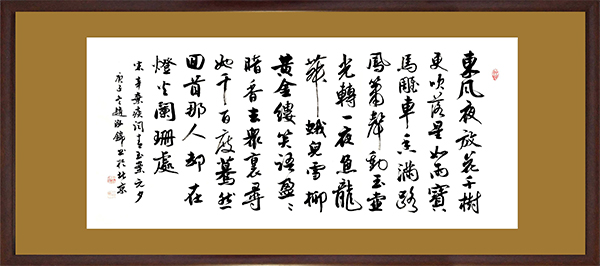 東風夜放花千樹
更吹落星如雨寶
馬雕車香滿路
鳳簫聲動玉壺
光轉一夜魚龍
舞蛾兒雪柳
黃金縷笑語盈盈
暗香去眾裏尋
她千百度驀然
回首那人卻在
燈火闌珊處
宋辛棄疾詞青玉案元夕
庚子冬趙 錦書於北京